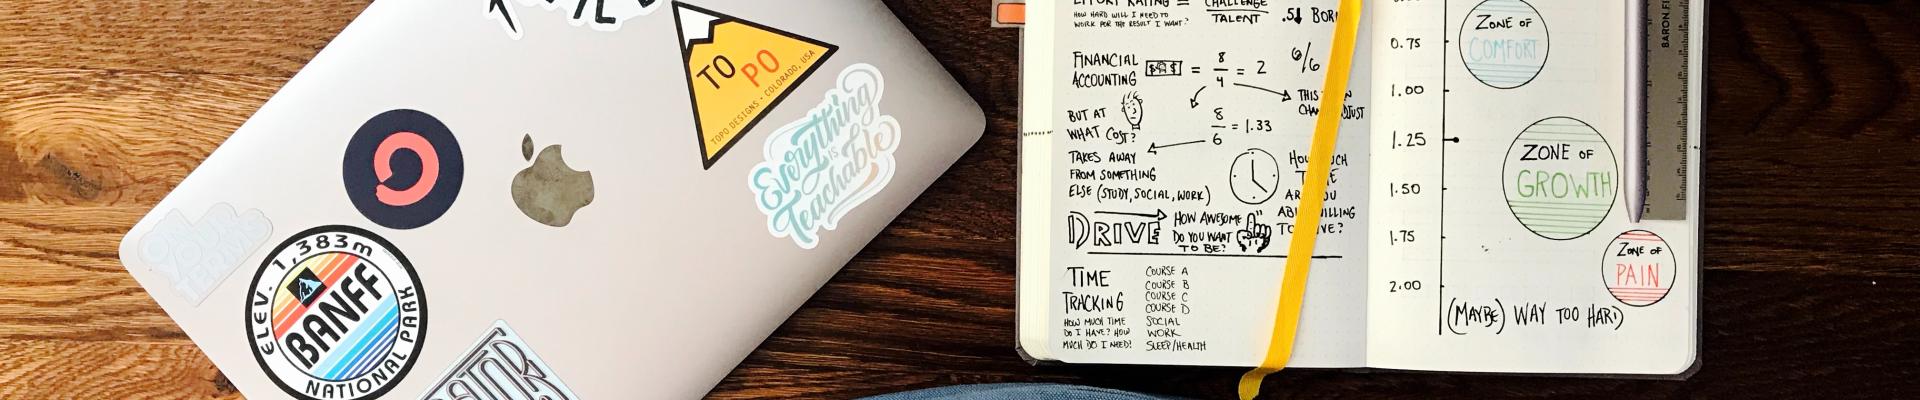 ON
YOUR
TERMS
ELEV. 1,383m
BANFF
NATIONAL PARK
TO
PO
TOPO DESIGNS • COLORADO, USA
Everything
is
Teachable
EFFORT RATING = CHALLENGE
TALENT
HOW HARD WILL I NEED TO
WORK FOR THE RESULT I WANT?
FINANCIAL
ACCOUNTING
$ $ = 8/4 = 2
6/6
BUT AT
WHAT COST?
8/6 = 1.33
TAKES AWAY
FROM SOMETHING
ELSE (STUDY, SOCIAL, WORK)
DRIVE
HOW AWESOME
DO YOU WANT
TO BE?
TIME
TRACKING
HOW MUCH TIME
DO I HAVE? HOW
MUCH DO I NEED?
COURSE A
COURSE B
COURSE C
COURSE D
SOCIAL
WORK
SLEEP/HEALTH
0.75
1.00
1.25
1.50
1.75
2.00
ZONE OF
COMFORT
ZONE OF
GROWTH
ZONE OF
PAIN
(MAYBE) WAY TOO HARD